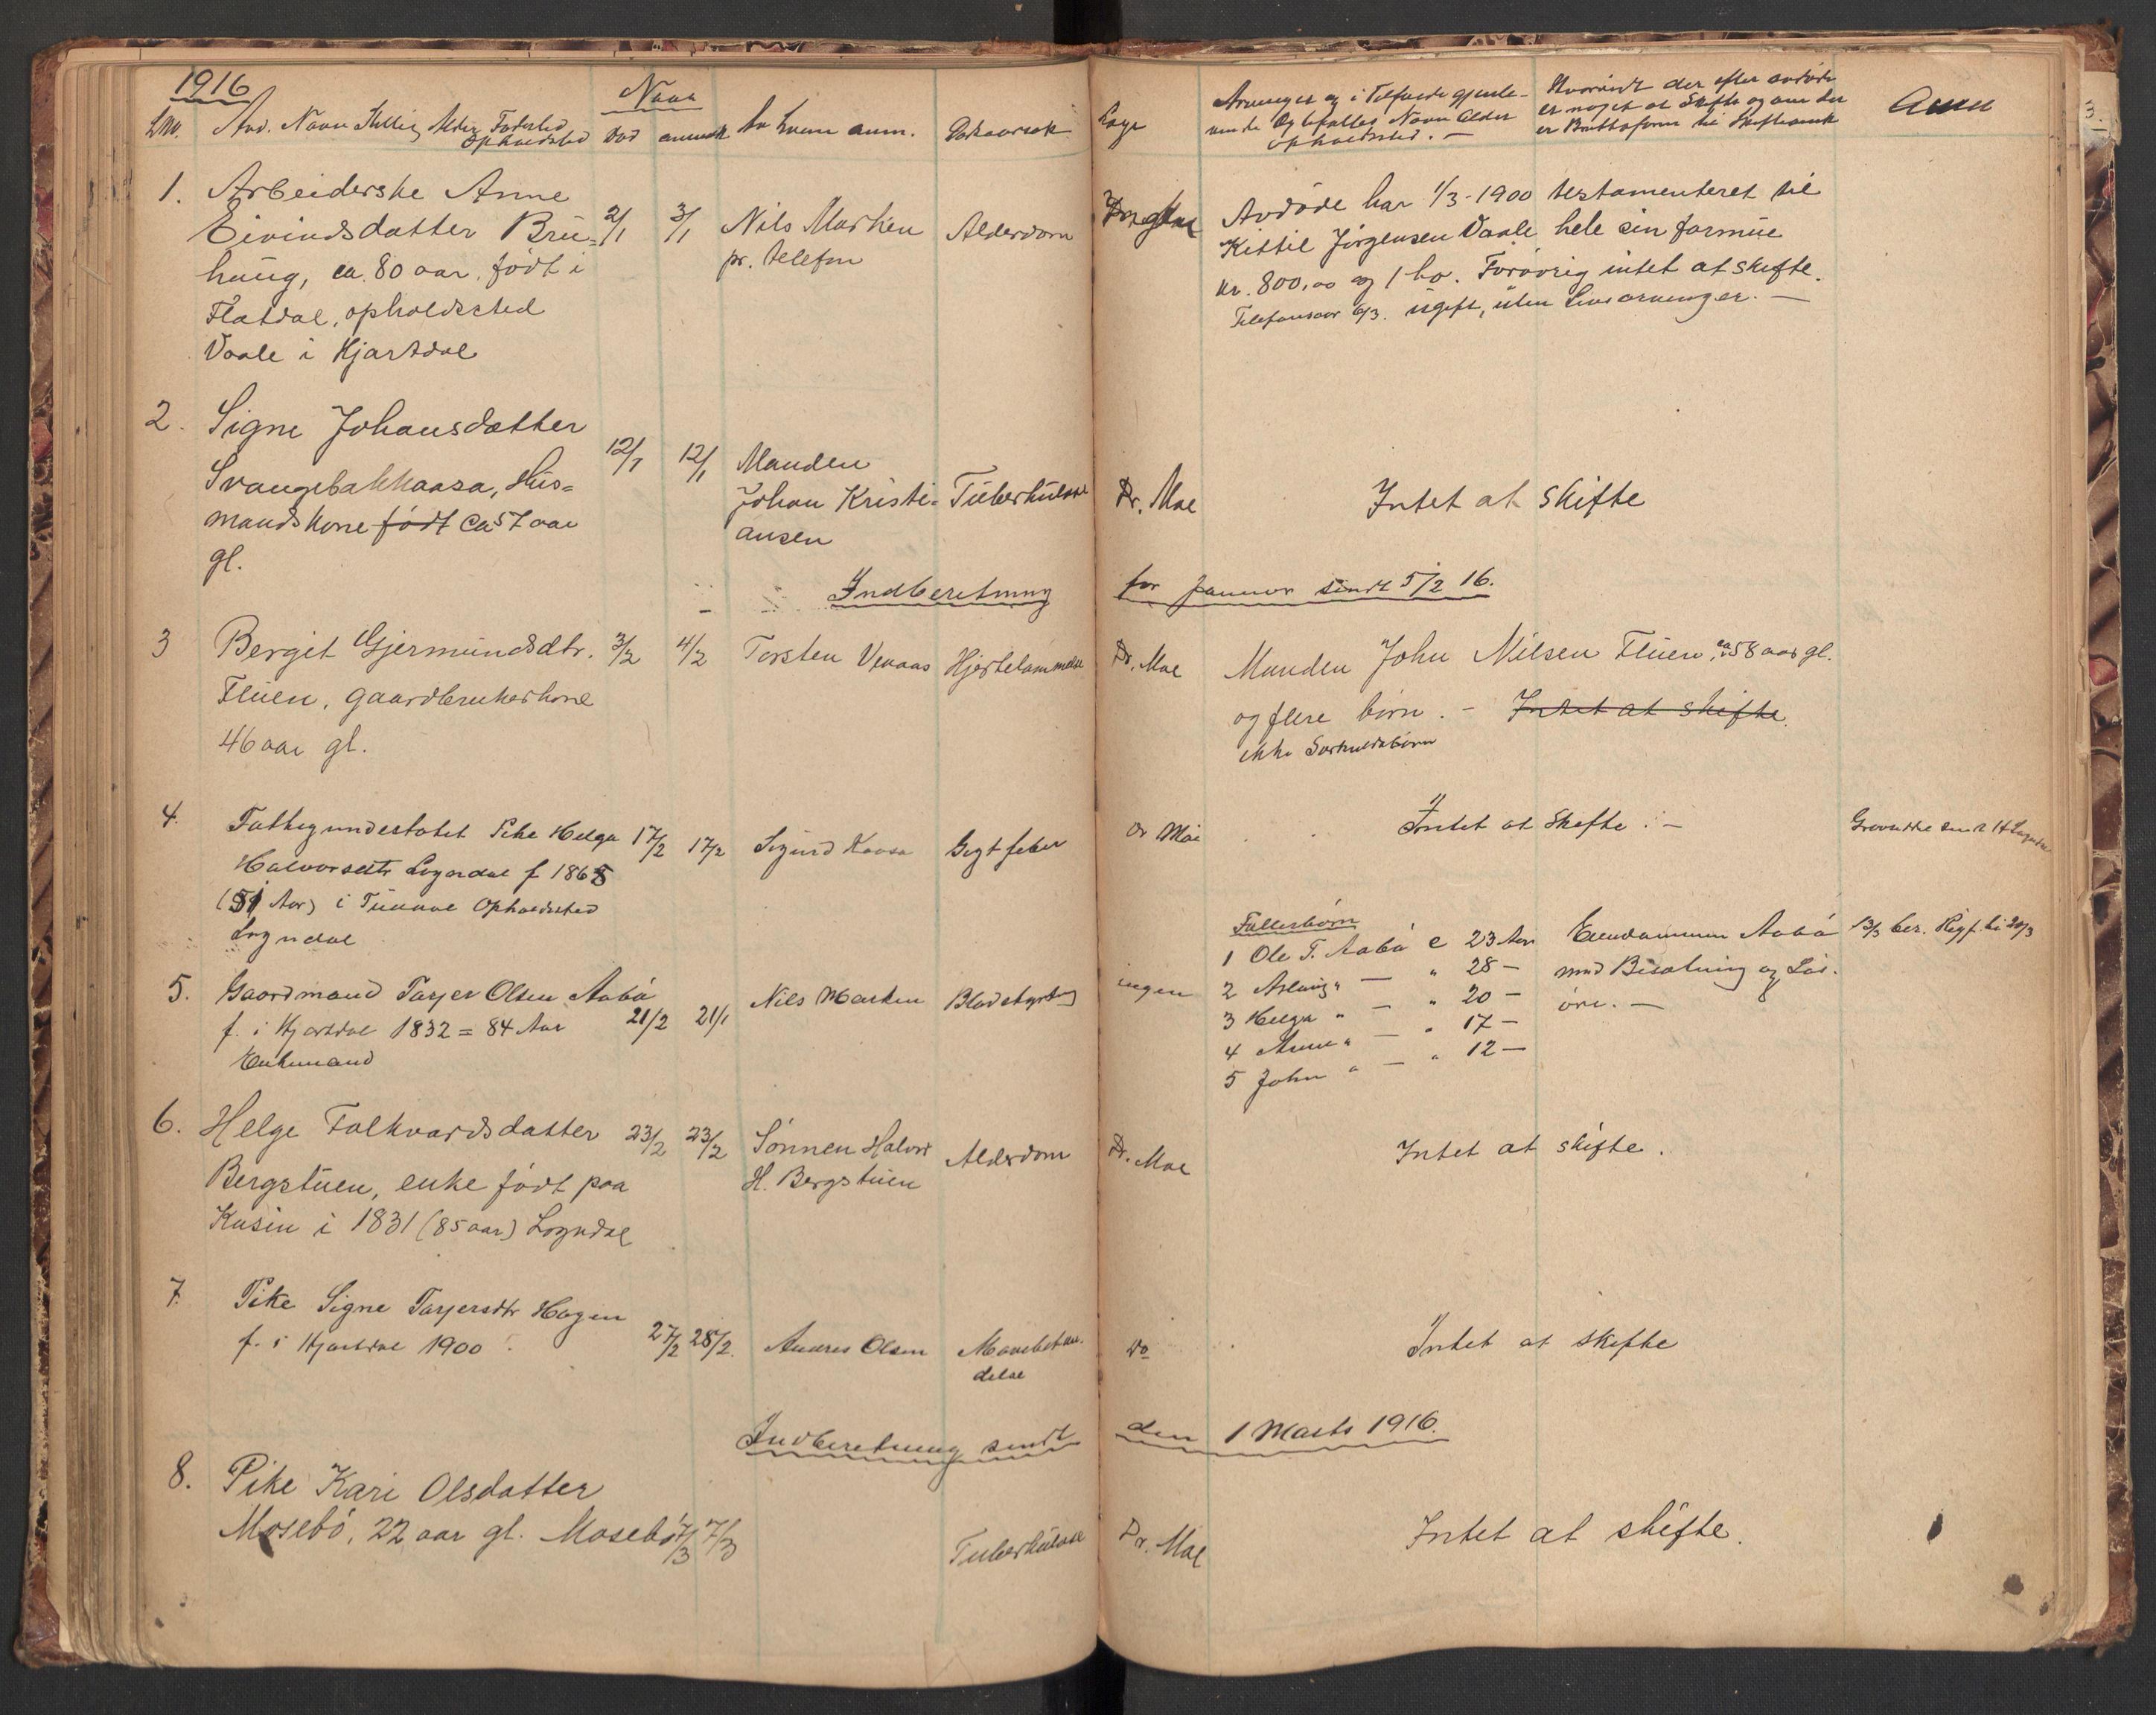 1916
LNo. Avd. Navn Stilling Alder Fødested
Opholdssted
Naar
død anmeldt Av hvem anm. Dødsaarsak
Læge
Arvinger og i Tilfælde gjenle-
vende Ægtefælles Navn Alder
Opholdssted. —
Hvorvidt der efter avdøde
er noget at Skifte og om der
er Bruttoform til Skiftesamk
Anm
1. Arbeiderske Anne
Eivindsdatter Bru= 2/1 3/1 Nils Marken Alderdom
haug, ca. 80 aar, født i pr. telefon
Flatdal, opholdssted
Vaale i Hjartdal
Avdøde har 1/3-1900 testamenteret til
Kittil Jørgensen Vaale hele sin formue
kr. 800,00 og 1 ko. Forøvrig intet at skifte.
Telefonsvar 6/3. ugift, uten Livsarvinger. —
2. Signe Johansdatter
Svangebakkaasa, Hus= 12/1 12/1 Manden
mandskone født ca 57 aar Johan Kristi- Tuberkulose
gl. ansen
Dr. Moe Intet at skifte
Indberetning for januar sendt 5/2 16.
3 Bergit Gjermundsdtr. 3/2 4/2 Torsten Venaas Hjertelammelse
Fluen, gaardbrukerkone
46 aar gl.
Dr. Moe Manden John Nilsen Fluen, ca 58 aar gl.
og flere børn. - Intet at skifte.
ikke Særkuldsbørn
4. Fattigunderstøtet Pike Helga 17/2 17/2 Sigurd Kaasa Gigtfeber
Halvorsdtr Løgndal f 1865
(51 Aar) i Tuddal Opholdssted
Løgndal
Dr Moe Intet at Skifte. —
5. Gaardmand Tarjer Olsen Aabø
f. i Hjartdal 1832 = 84 Aar 21/2 21/1 Nils Marken Blodstyrtning
Enkemand
ingen
Fællesbørn
1 Ole T. Aabø c 23 Aar
2 Aslaug " — " 28 —
3 Helga " — " 20 —
4 Anne " — " 17 —
5 John " — " 12 —
Eiendommen Aabø
med Besætning og Løs-
øre. —
13/3 ber. Regf. til 20/3
6. Helge Folkvardsdatter 23/2 23/2 Sønnen Halvor Alderdom
Bergstuen, enke født paa H. Bergstuen
Kasin i 1831 (85 aar) Løgndal
Dr. Moe Intet at skifte.
7. Pike Signe Tarjersdtr Hagen
f. i Hjartdal 1900. 27/2 28/2. Anders Olsen Mavebetæn-
delse
Do Intet at skifte
Indberetning sendt den 1 Marts 1916.
8. Pike Kari Olsdatter
Mosebø, 22 aar gl. Mosebø 7/3 7/3 Tuberkulose
Dr. Moe Intet at skifte.